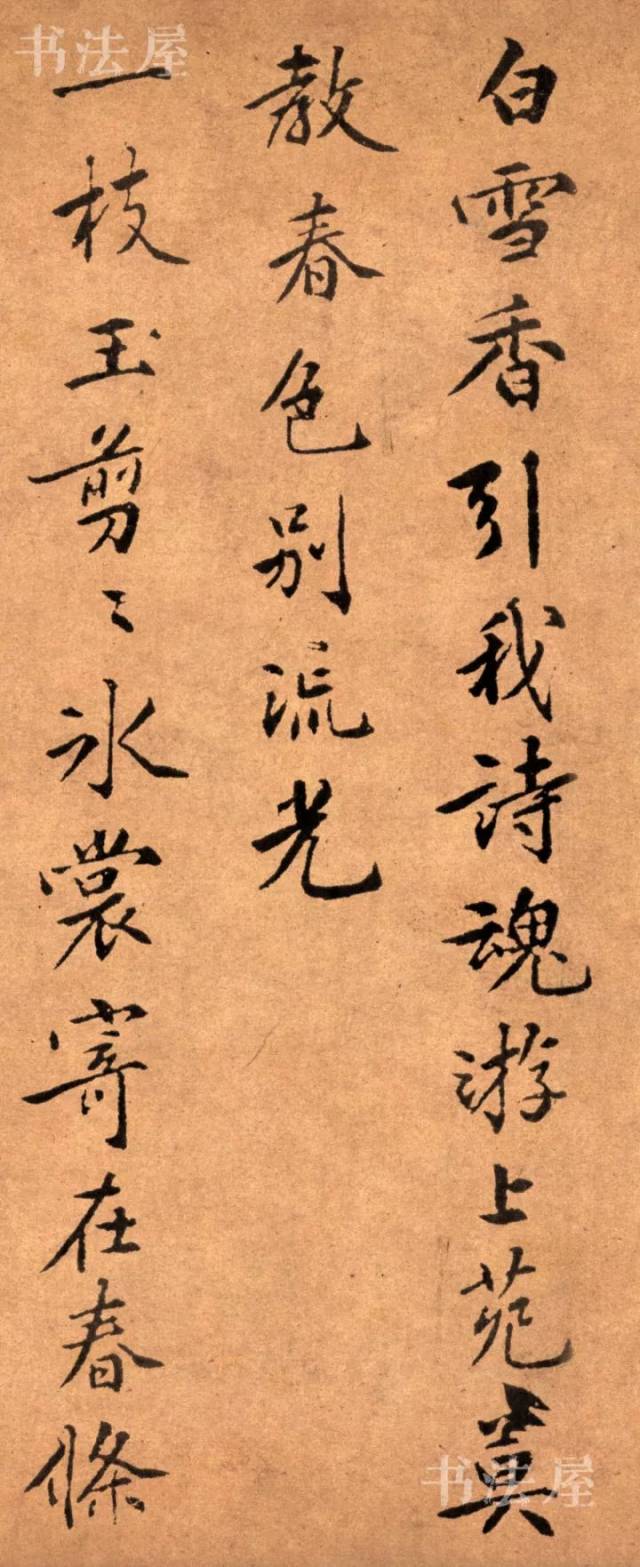 白雪香引我詩魂游上苑莫
教春色別流光
一枝玉剪〻氷裳寄在春條
书法屋
书法屋